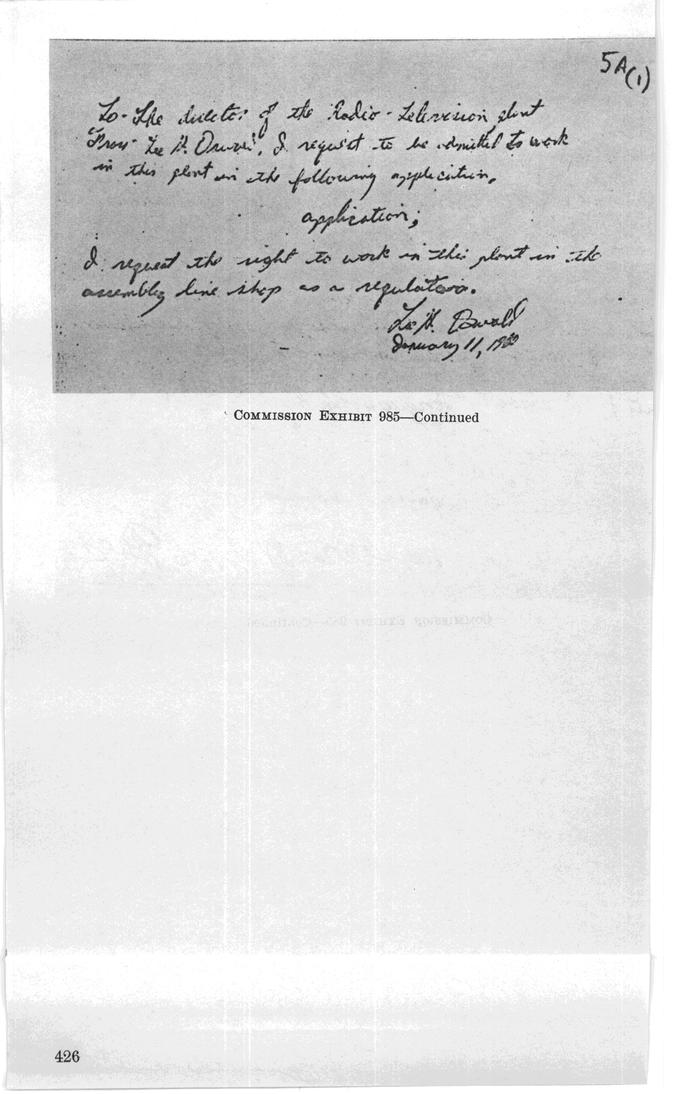 5A(1)
To- The director of the Radio-Television plant
From- Lee H. Oswald, I request to be admitted to work
in this plant in the following application.
application;
I request the right to work in this plant in the
assembly line shop as a regulator.
Lee H. Oswald
January 11, 1960
COMMISSION EXHIBIT 985—Continued
426